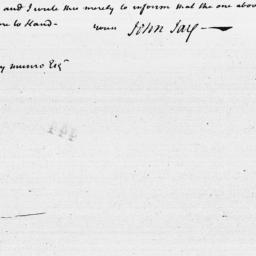 and I write this merely to inform that the one abov
re to Hand—
yours John Jay —
y munro Esqr